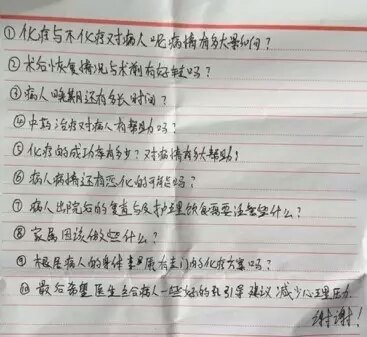 ① 化疗与不化疗对病人呢病情有多大影响?
② 术后恢复情况与术前有好转吗?
③ 病人晚期还有多长时间?
④ 中药治疗对病人有帮助吗?
⑤ 化疗的成功率有多少?对病情有多大帮助?
⑥ 病人病情还有恶化的可能吗?
⑦ 病人出院后的复查与及护理饮食需要注意些什么?
⑧ 家属因该做些什么?
⑨ 根居病人的身体 有专门的化疗方案吗?
⑩ 最后希望医生给病人一些好的 引导建议 减少心理压力.
谢谢!